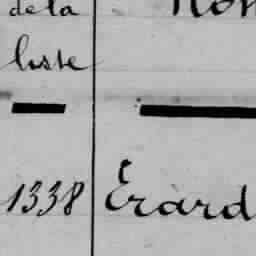 de la
liste
1338 Erard